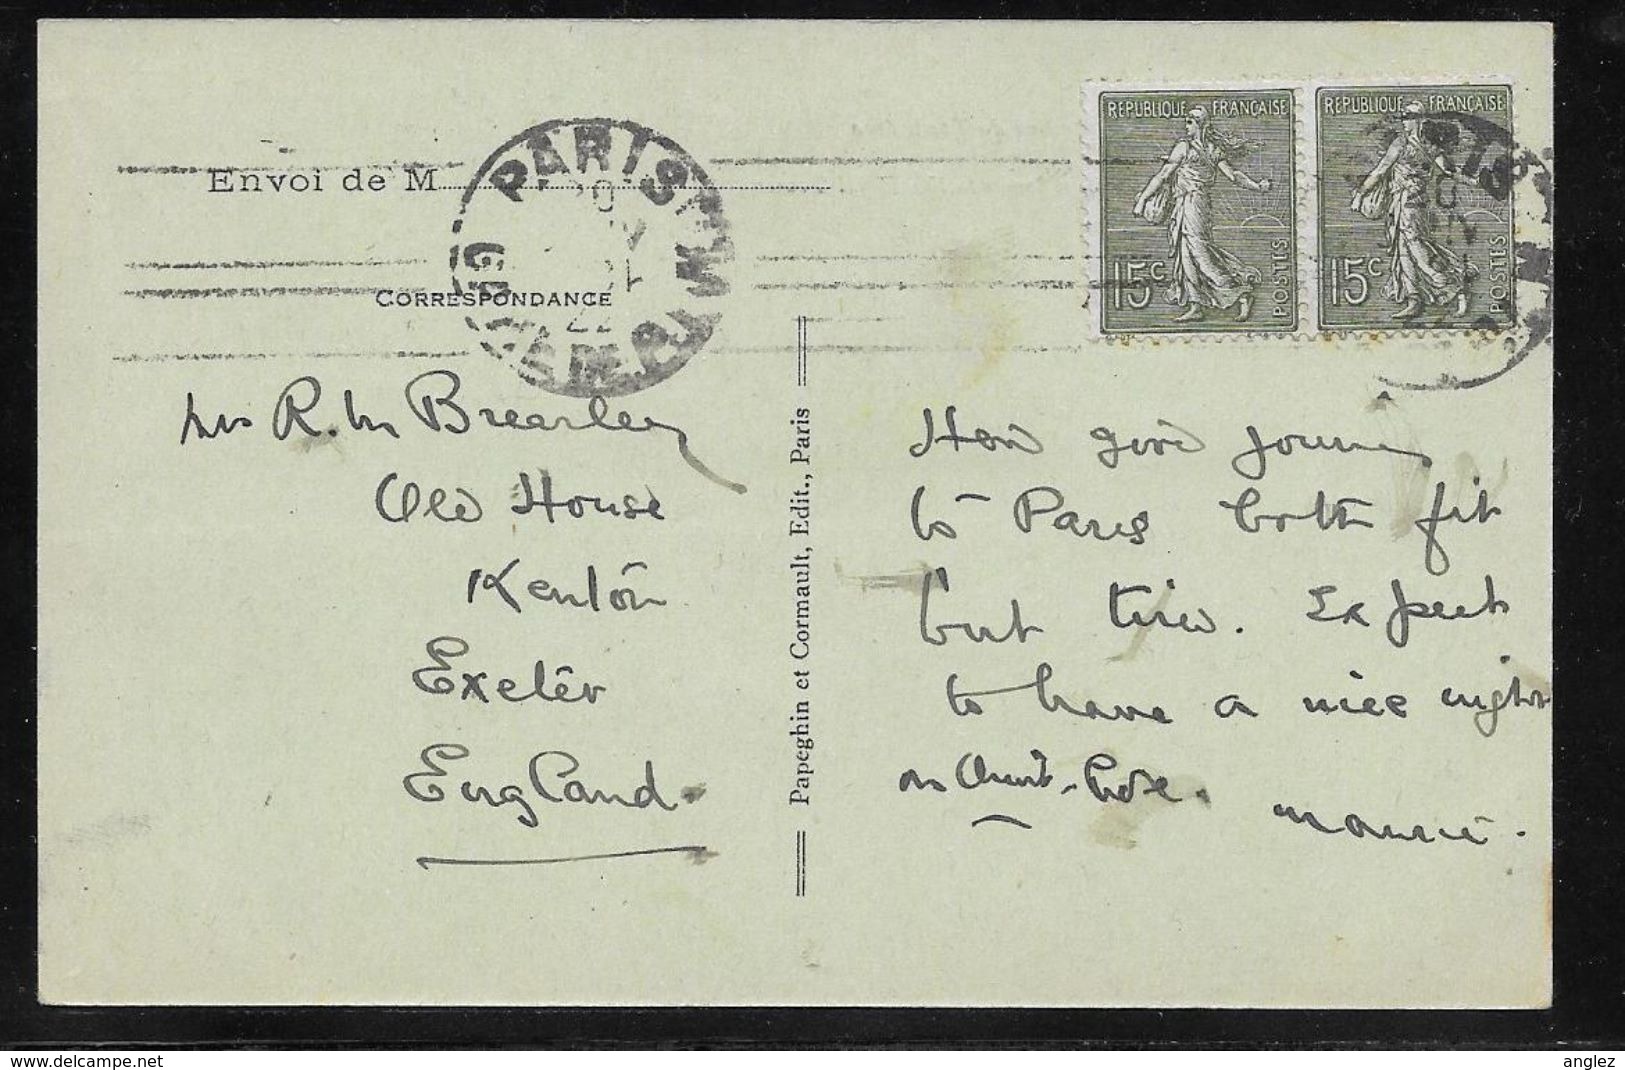 Envoi de M
CORRESPONDANCE
PARIS
RUE
REPUBLIQUE FRANÇAISE
15c
POSTES
REPUBLIQUE FRANÇAISE
15c
POSTES
Mrs R. M Brearley
Old House
Kenton
Exeter
England.
Papeghin et Cormault, Edit., Paris
Had good journey
to Paris both fit
but tired. Expect
to have a nice night
Maurice.
www.delcampe.net
anglez